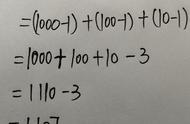 =(1000-1)+(100-1)+(10-1)
=1000+100+10-3
=1110-3
=1107